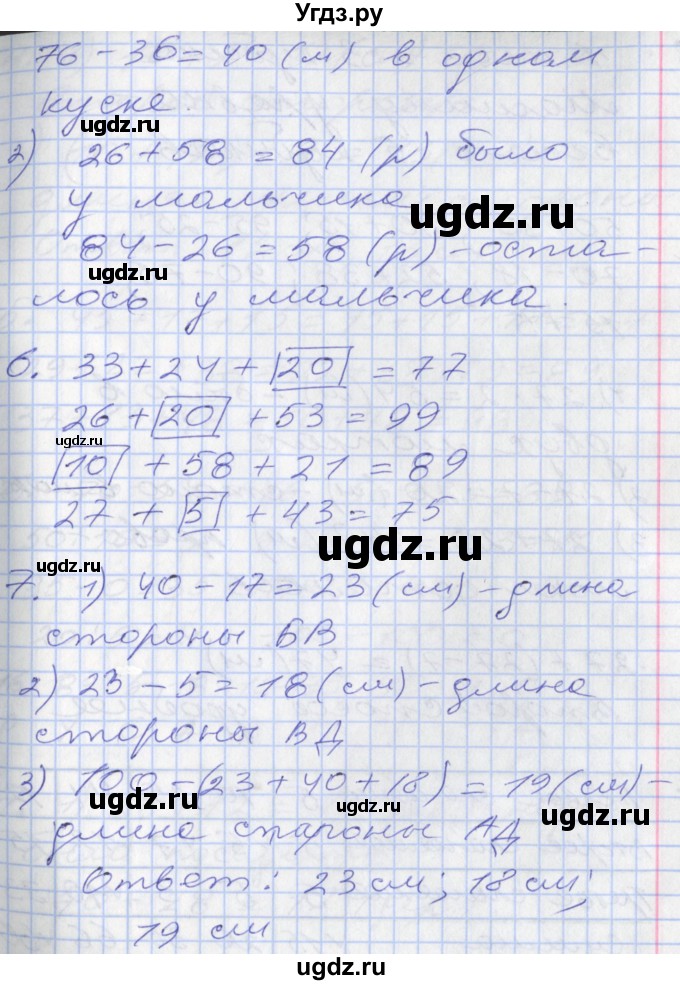 Угдз.ру
76 - 36 = 40 (м) в одном
куске.
2) 26 + 58 = 84 (р) было
у мальчика
84 - 26 = 58 (р) - оста-
лось у мальчика.
6. 33 + 24 + |20| = 77
26 + |20| + 53 = 99
|10| + 58 + 21 = 89
27 + |5| + 43 = 75
7. 1) 40 - 17 = 23 (см) - длина
стороны БВ
2) 23 - 5 = 18 (см) - длина
стороны ВД
3) 100 - (23 + 40 + 18) = 19 (см) -
длина староны АД
Ответ: 23 см; 18 см;
19 см
ugdz.ru
ugdz.ru
ugdz.ru
ugdz.ru
ugdz.ru
ugdz.ru
ugdz.ru
ugdz.ru
ugdz.ru
ugdz.ru
ugdz.ru
ugdz.ru
ugdz.ru
ugdz.ru